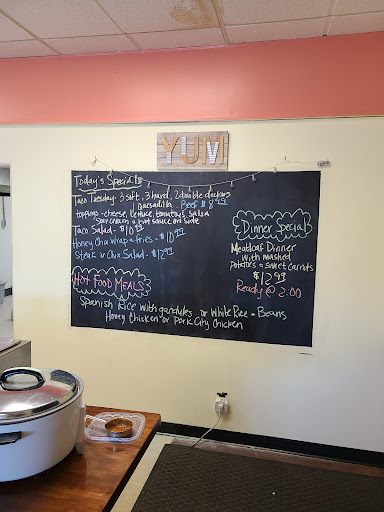 YUM
Today's Specials
Taco Tuesday - 3 soft, 3 hard, 2 double deckers
Quesadilla Beef $8.99
toppings - cheese, lettuce, tomatoes, salsa
sour cream & hot sauce on side
Taco Salad - 10.99
Honey Chix Wrap & fries - $10.99
Steak or Chix Salad - $12.99
Dinner Special
Meatloaf Dinner
with mashed
potatoes & sweet carrots
$12.99
Ready @ 2:00
HOT FOOD MEALS
Spanish Rice with gandules or White Rice & Beans
Honey Chicken or Pork City Chicken